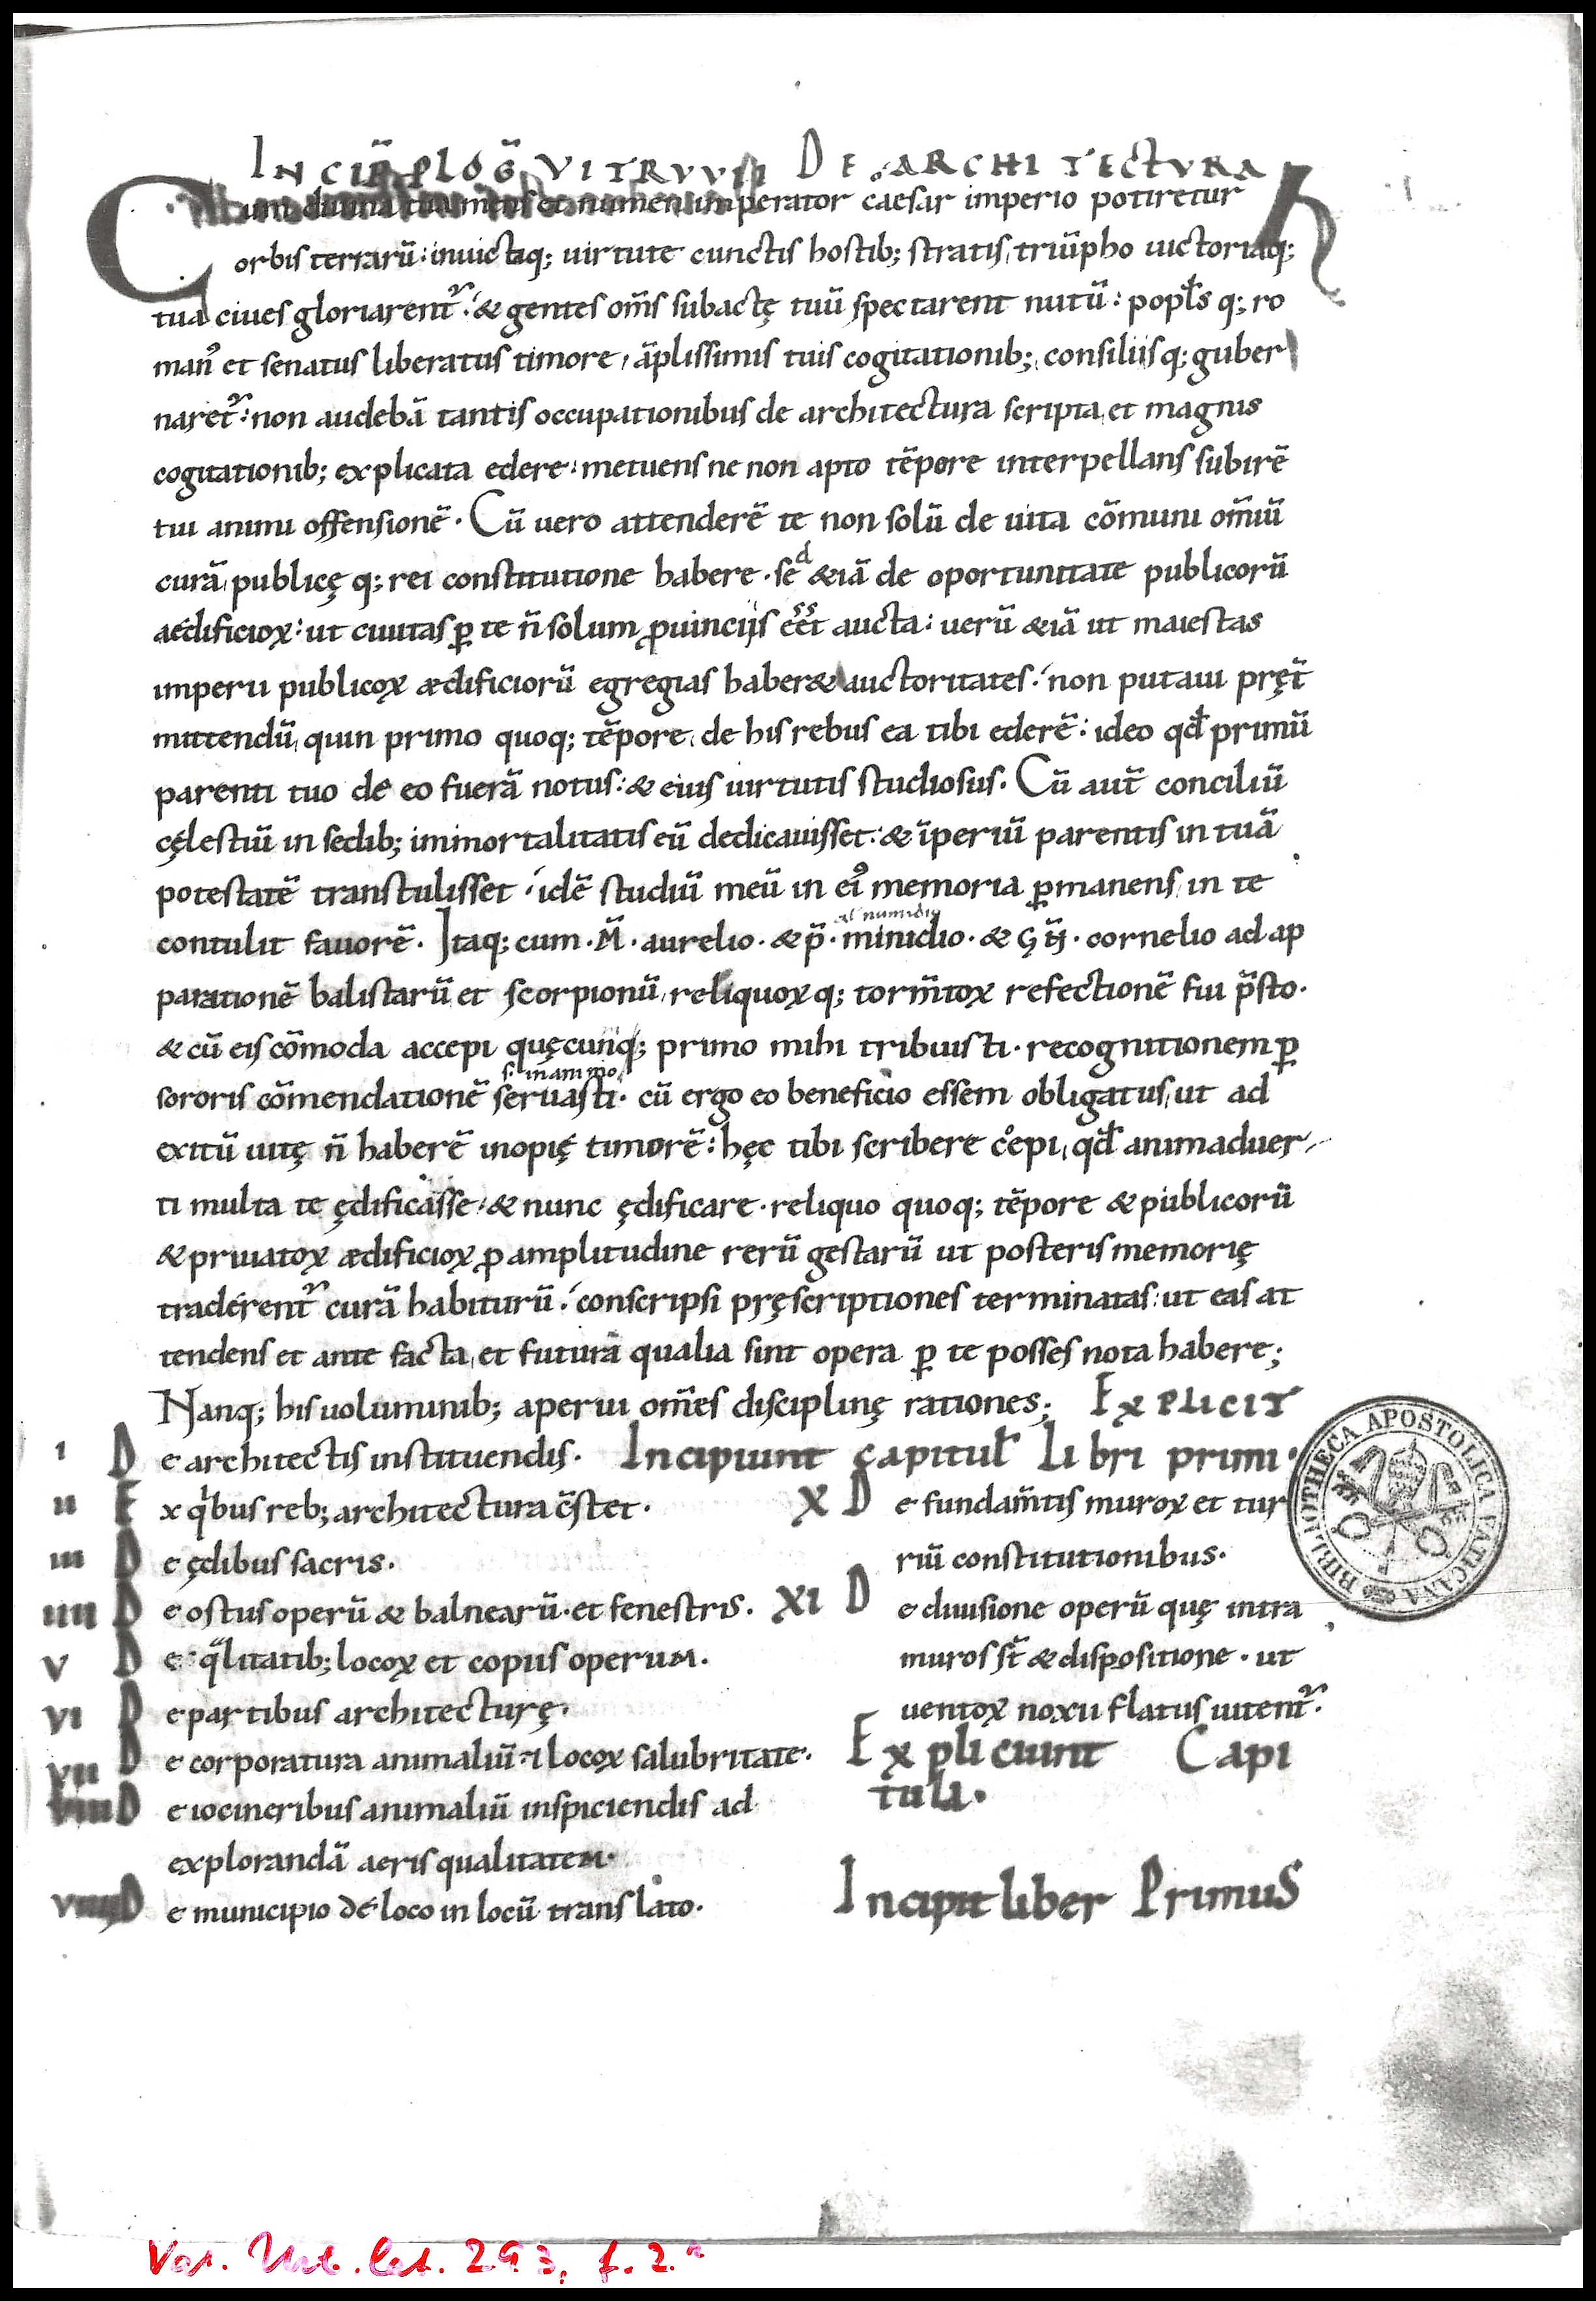 INCIP̄ P̄LOḠ VITRUVII DE ARCHITECTURA
Cum diuina tua mens et numen imperator caesar imperio potiretur
orbis terrarū: inuictaq; uirtute cunctis hostib; stratis, triūpho uictoriaq;
tua ciues gloriarent᷑. & gentes om̄s subactę tuū spectarent nutū: popłs q; ro
manꝰ et senatus liberatus timore, āplissimis tuis cogitationib; consiliisq; guber
naret᷑: non audebā tantis occupationibus de architectura scripta, et magnis
cogitationib; explicata edere: metuens ne non apto tēpore interpellans subirē
tui animi offensionē. Cū uero attenderē te non solū de uita cōmuni om̄iū
curā, publicę q; rei constitutione habere. sed &iā de oportunitate publicorū
aedificioꝝ: ut ciuitas ꝑ te n̄ solum ꝓuinciis eēt aucta: uerū &iā ut maiestas
imperii publicoꝝ ædificiorū egregias haber& auctoritates. non putaui pręt̄
mittendū, quin primo quoq; tēpore, de his rebus ea tibi ederē: ideo qđ primū
parenti tuo de eo fuerā notus: & eius uirtutis studiosus. Cū aut̄ conciliū
cęlestiū in sedib; immortalitatis eū dedicauisset: & īperiū parentis in tuā
potestatē transtulisset idē studiū meū in eiꝰ memoria ꝑmanens, in te
al numidio
contulit fauorē. Itaq; cum .M̄. aurelio. & p̄. minidio. & gn̄. cornelio ad ap
parationē balistarū et scorpionū, reliquoꝝ q; torm̄toꝝ refectionē fui p̄sto.
& cū eis cōmoda accepi quęcunq; primo mihi tribuisti. recognitionem ꝑ
s. in animo
sororis cōmendationē seruasti. cū ergo eo beneficio essem obligatus, ut ad
exitū uitę n̄ haberē inopię timorē: hęc tibi scribere cepi, qđ animaduer-
ti multa te ędificasse: & nunc ędificare. reliquo quoq; tēpore & publicorū
& priuatoꝝ ædificioꝝ ꝓ amplitudine rerū gestarū ut posteris memorię
traderent᷑ curā habiturū. conscripsi pręscriptiones terminatas: ut eas at
tendens et ante facta, et futura qualia sint opera ꝑ te posses nota habere;
Nanq; his uoluminib; aperui om̄es disciplinę rationes; EXPLICIT
i De architectis instituendis. Incipiunt capituł Libri primi.
ii Ex qͥbus reb; architectura c̄stet.
iii De ędibus sacris.
iiii De ostus operū & balnearū. et fenestris.
v De qͣlitatib; locoꝝ et copiis operum.
vi De partibus architecturę.
vii De corporatura animaliū. & locoꝝ salubritate.
viii De iocineribus animaliū inspiciendis ad
explorandā aeris qualitatem.
viiii De municipio de loco in locū translato.
X De fundam̄tis muroꝝ et tur
riū constitutionibus.
XI De diuisione operū quę intra
muros st̄ & dispositione. ut
uentoꝝ noxii flatus uitent᷑.
Expliciunt Capi
tula.
Incipit liber Primus
BIBLIOTHECA APOSTOLICA VATICANA
Vat. Urb. lat. 293, f. 2.r